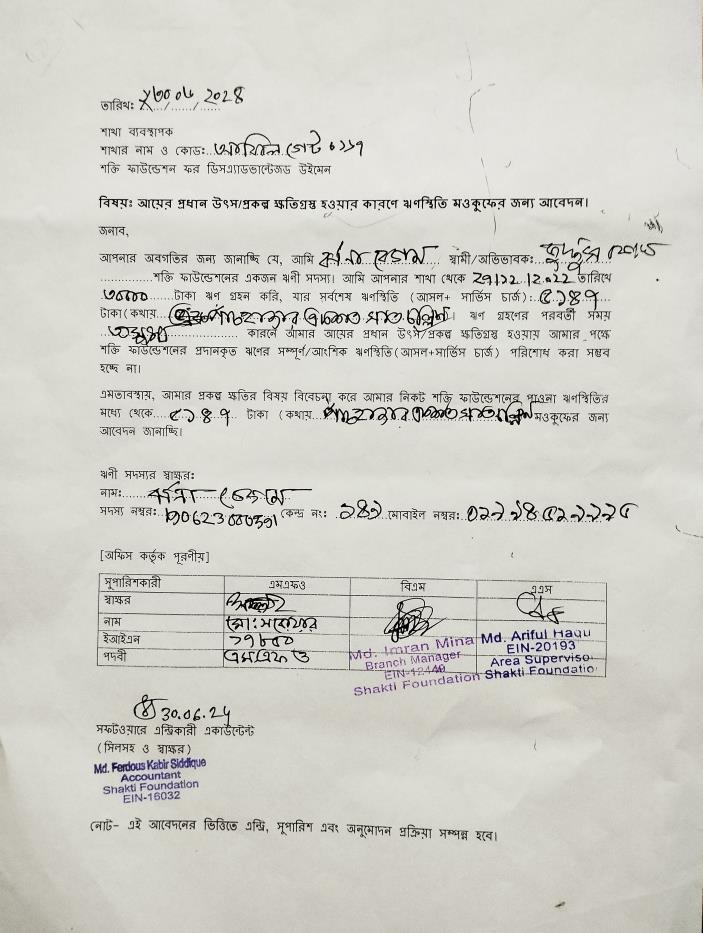 তারিখ: ৩০/০৬/২০২৪
শাখা ব্যবস্থাপক
শাখার নাম ও কোড: গেট ০১১৭
শক্তি ফাউন্ডেশন ফর ডিসএ্যাডভান্টেজড উইমেন
বিষয়: আয়ের প্রধান উৎস/প্রকল্প ক্ষতিগ্রস্থ হওয়ার কারণে ঋণস্থিতি মওকুফের জন্য আবেদন।
জনাব,
আপনার অবগতির জন্য জানাচ্ছি যে, আমি বেগম স্বামী/অভিভাবক:
শক্তি ফাউন্ডেশনের একজন ঋণী সদস্য। আমি আপনার শাখা থেকে তারিখে
৩০০০০ টাকা ঋণ গ্রহন করি, যার সর্বশেষ ঋণস্থিতি (আসল+ সার্ভিস চার্জ): ৫১৪৭
টাকা (কথায় পাঁচহাজার একশত সাত চল্লিশ)। ঋণ গ্রহণের পরবর্তী সময়
কারনে আমার আয়ের প্রধান উৎস/প্রকল্প ক্ষতিগ্রস্থ হওয়ায় আমার পক্ষে
শক্তি ফাউন্ডেশনের প্রদানকৃত ঋণের সম্পূর্ণ/আংশিক ঋণস্থিতি(আসল+সার্ভিস চার্জ) পরিশোধ করা সম্ভব
হচ্ছে না।
এমতাবস্থায়, আমার প্রকল্প ক্ষতির বিষয় বিবেচনা করে আমার নিকট শক্তি ফাউন্ডেশনের পাওনা ঋণস্থিতির
মধ্যে থেকে ৫১৪৭ টাকা (কথায় পাঁচহাজার একশত সাত চল্লিশ মওকুফের জন্য
আবেদন জানাচ্ছি।
ঋণী সদস্যর স্বাক্ষর:
নাম: বেগম
সদস্য নম্বর: কেন্দ্র নং: মোবাইল নম্বর:
[অফিস কর্তৃক পূরণীয়]
সুপারিশকারী এমএফও বিএম এএস
স্বাক্ষর
নাম মো:
ইআইএন
পদবী এমএফও
Md. Imran Mina
Branch Manager
EIN-12440
Shakti Foundation
Md. Ariful Haqu
EIN-20193
Area Superviso
Shakti Foundatio
30.06.24
সফটওয়ারে এন্ট্রিকারী একাউন্টেন্ট
(সিলসহ ও স্বাক্ষর)
Md. Ferdous Kabir Siddique
Accountant
Shakti Foundation
EIN-16032
নোট- এই আবেদনের ভিত্তিতে এন্ট্রি, সুপারিশ এবং অনুমোদন প্রক্রিয়া সম্পন্ন হবে।